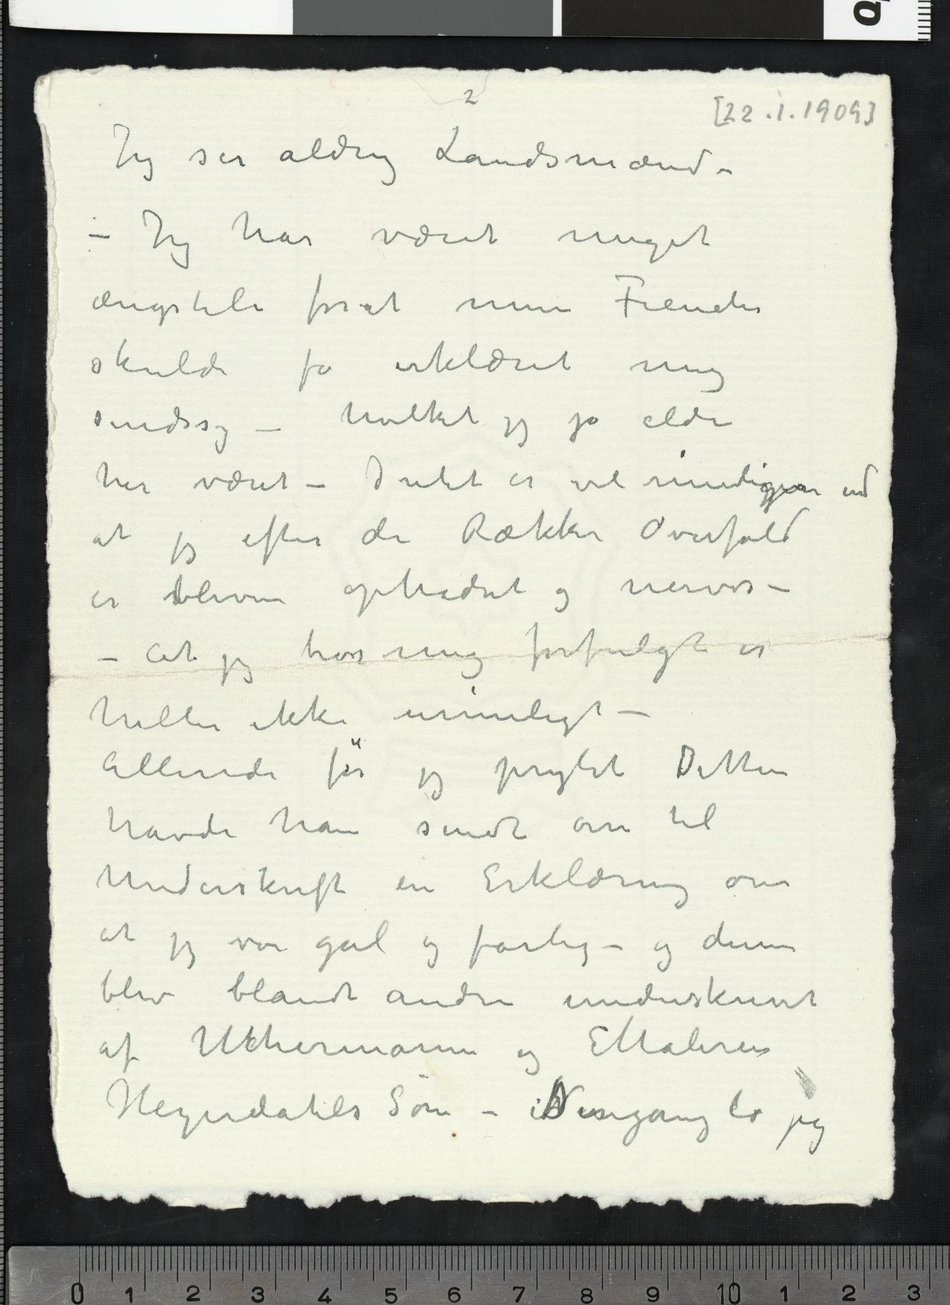 2
[22.1.1909]
Jeg ser aldrig Landsmænd –
– Jeg har været meget
ængstelig for at mine Fiender
skulde få erklæret mig
sindssyg – hvilket jeg jo aldri
har været – Intet er vel rimeligere end
at jeg efter de Rækker Overfald
er bleven ophidset og nervøs –
– At jeg tror mig forfulgt er
heller ikke urimeligt –
Allerede før jeg pryglet Ditten
havde han sendt om til
Underskrift en Erklæring om
at jeg var gal og farlig – og denne
blev blandt andre underskrevet
af Uchermann og Maleren
Heyerdahls Søn – Dengang lo jeg